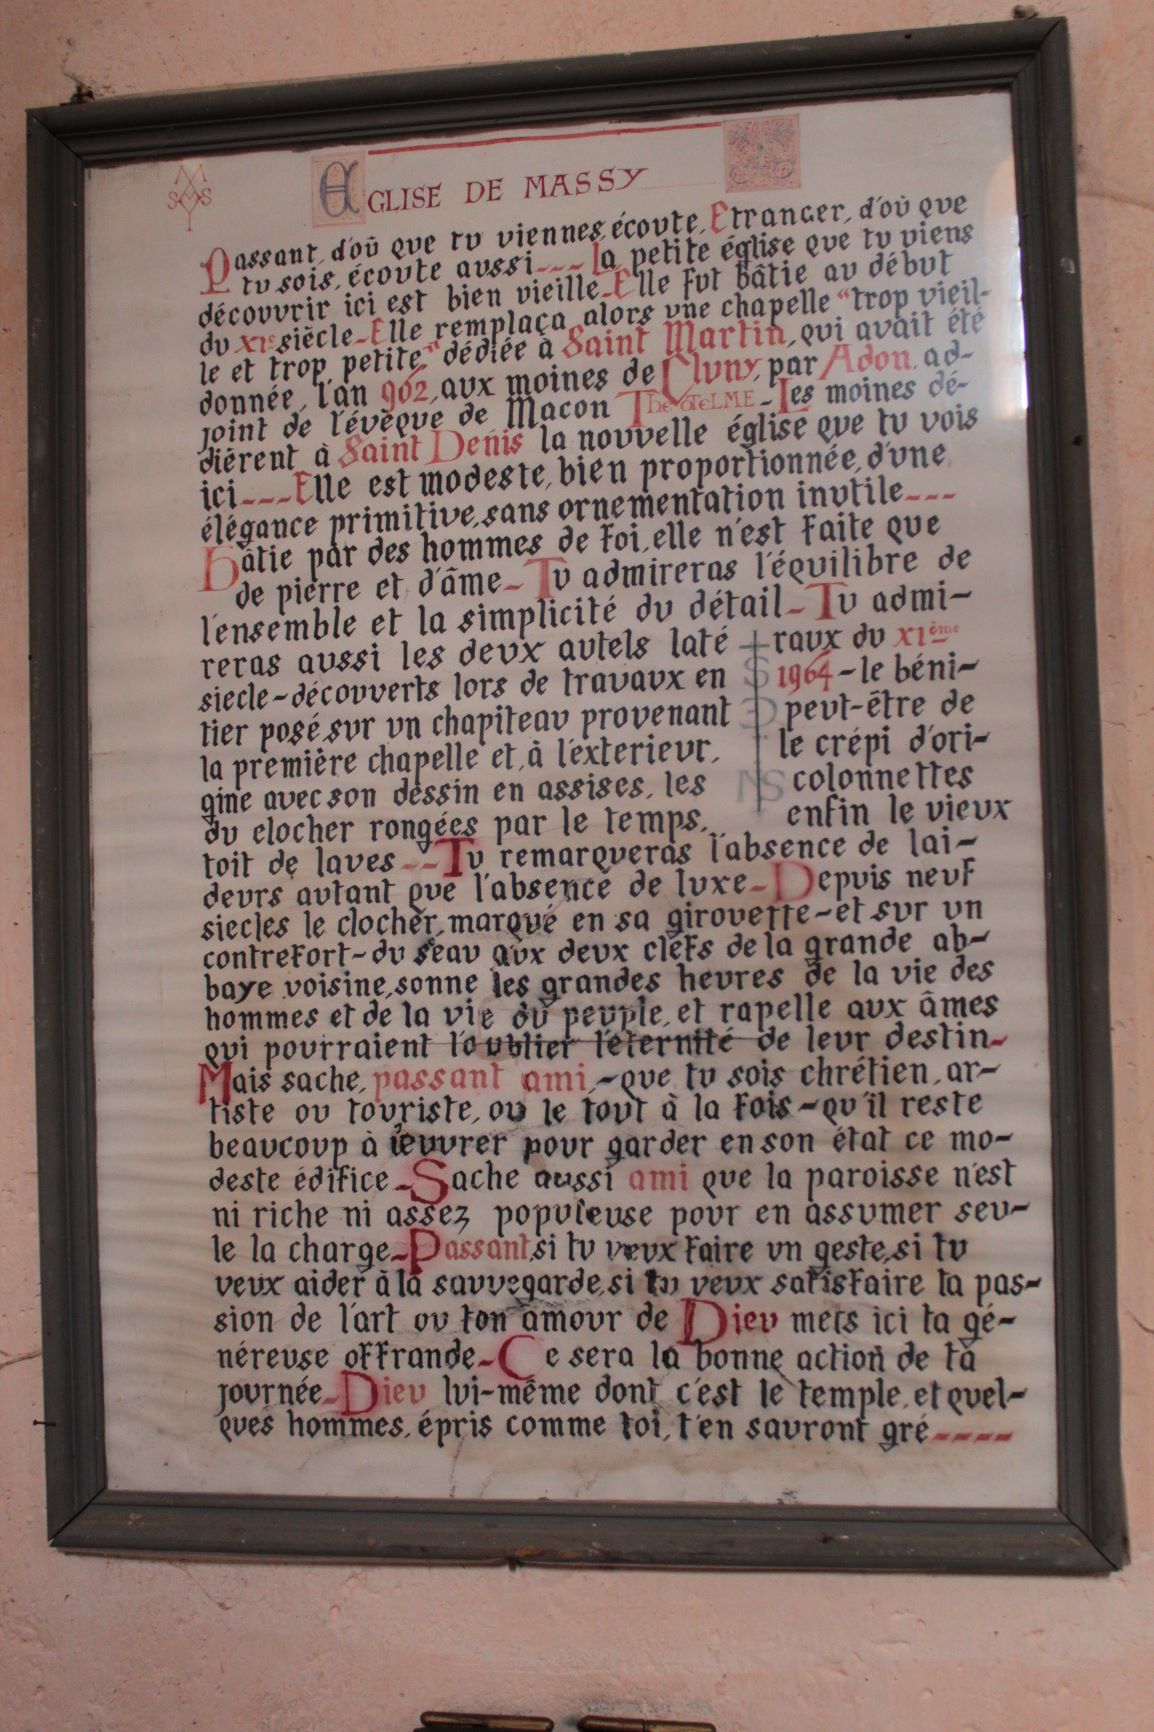 EGLISE DE MASSY
Passant, d'où que tu viennes, écoute, Etranger, d'où que
tu sois, écoute aussi--- La petite église que tu viens
découvrir ici est bien vieille-Elle fut bâtie au début
du XIe siècle-Elle remplaça alors une chapelle "trop vieil-
le et trop petite" dédiée à Saint Martin, qui avait été
donnée, l'an 902, aux moines de Cluny, par Adon, ad-
joint de l'évêque de Macon ThéoTELME - Les moines dé-
dièrent à Saint Denis la nouvelle église que tu vois
ici---Elle est modeste, bien proportionnée, d'une
élégance primitive, sans ornementation inutile---
Bâtie par des hommes de foi, elle n'est faite que
de pierre et d'âme-Tu admireras l'équilibre de
l'ensemble et la simplicité du détail-Tu admi-
reras aussi les deux autels laté raux du XIème
siecle-découverts lors de travaux en 1964-le béni-
tier posé sur un chapiteau provenant peut-être de
la première chapelle et, à l'exterieur, le crépi d'ori-
gine avec son dessin en assises, les colonnettes
du clocher rongées par le temps, enfin le vieux
toit de laves---Tu remarqueras l'absence de lai-
deurs autant que l'absence de luxe-Depuis neuf
siecles le clocher, marqué en sa girouette-et sur un
contrefort-du seau aux deux clefs de la grande ab-
baye voisine, sonne les grandes heures de la vie des
hommes et de la vie du peuple, et rapelle aux âmes
qui pourraient l'oublier l'éternité de leur destin-
Mais sache, passant ami,-que tu sois chrétien, ar-
tiste ou touriste, ou le tout à la fois-qu'il reste
beaucoup à œuvrer pour garder en son état ce mo-
deste édifice-Sache aussi ami que la paroisse n'est
ni riche ni assez populeuse pour en assumer seu-
le la charge-Passant, si tu veux faire un geste, si tu
veux aider à la sauvegarde, si tu veux satisfaire ta pas-
sion de l'art ou ton amour de Dieu mets ici ta gé-
néreuse offrande-Ce sera la bonne action de ta
journée-Dieu lui-même dont c'est le temple, et quel-
ques hommes, épris comme toi, t'en sauront gré----